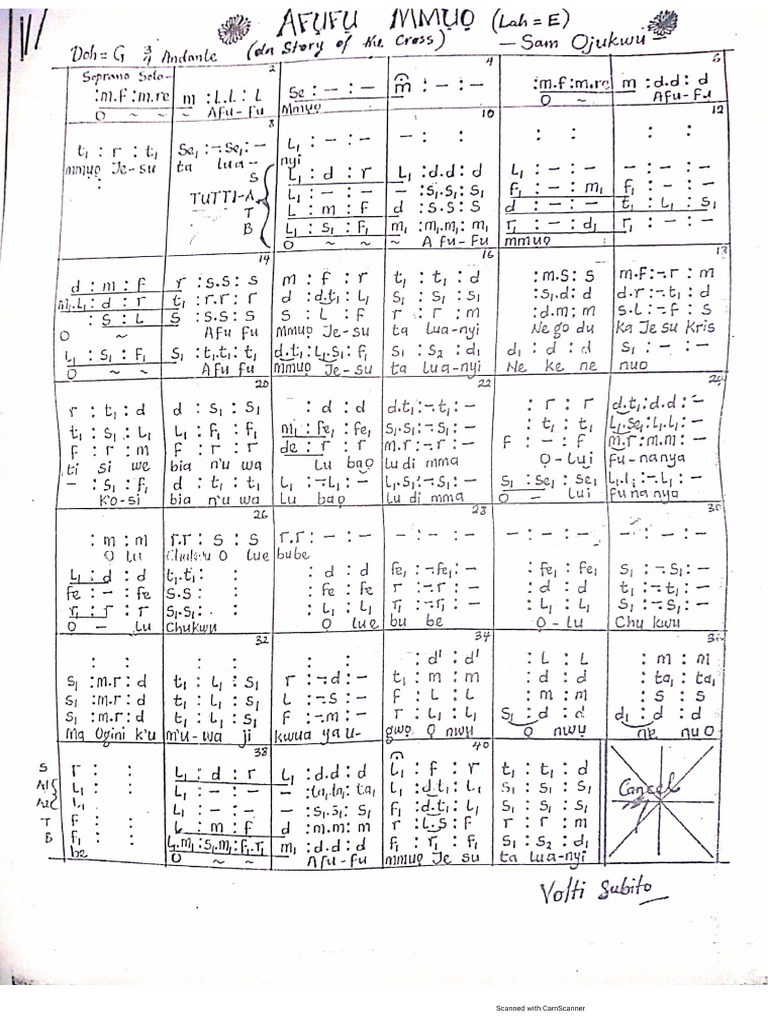 AFỤFỤ MMỤỌ (Lah = E)
Doh = G 3/4 Andante (An Story of the Cross) - Sam Ojukwu
Soprano Solo- 2 4 6
:m.f:m.re m :l.l: l Se : - : - m : - : - :m.f:m.re m :d.d: d
O ~ ~ Afu-fu Mmuo O ~ Afu-fu
8 10 12
t₁ : r : t₁ Se₁:-.Se₁:- L₁ : - : - - : - : : : :
mmuọ Je-su ta lua- nyi
S L₁ : d : r L₁ :d.d: d L₁ : - : - - : - : -
TUTTI-A L₁ : - : - - :s₁.s₁: s₁ f₁ : - : m₁ f₁ : - : -
T L : m : f d :s.s: s d : - : - t₁ : L₁ : s₁
B L₁ : s₁ : f₁ m₁ :m₁.m₁: m₁ r₁ : - : d₁ r₁ : - : -
O ~ ~ A fu-fu mmuo
14 16 18
d : m : f r :s.s: s m : f : r t₁ : t₁ : d :m.s: s m.f:-.r : m
m₁.L₁: d : r t₁ :r.r: r d :d.t₁: L₁ s₁ : s₁ : s₁ :s₁.d: d d.r:-.t₁: d
: s : L s :s.s: s s : L : f r : r : m :d.m: m s.l:-.f : s
O ~ Afu fu Mmuọ Je-su ta lua-nyi Ne go du Ka Je su Kris
L₁ : s₁ : f₁ s₁ :t₁.t₁: t₁ d.t₁:L₁.s₁: f₁ s₁ : s₂ : d₁ d₁ : d : d s₁ : - : -
O ~ ~ A fu fu mmuọ Je-su ta lua-nyi Ne ke ne nuo
20 22 24
r : t₁ : d d : s₁ : s₁ : d : d d.t₁:-.t₁: - : r : r d.t₁:d.d: -
t₁ : s₁ : L₁ L₁ : f₁ : f₁ m₁ : fe₁ : fe₁ s₁.s₁:-.s₁: - : t₁ : t₁ L₁.se₁:L₁.L₁: -
f : r : m f : r : r de : r : r m.r:-.r: - f : - : f m.r:m.m: -
ti si we bia n'u wa Lu baọ lu di mma O-lui fu-nanya
- : s₁ : f₁ d : t₁ : t₁ L₁ :-.L₁: - L₁.s₁:-.s₁: - s₁ : se₁ : se₁ L₁.L₁:-.L₁: -
K'o-si bia n'u wa Lu baọ Lu di mma O - lui funanya
26 28 30
: m : m r.r: s : s r.r: - : - - : - : - - : - : - - : - : -
O lu Chukwu O lue bube
L₁ : d : d t₁.t₁: : : d : d fe₁ :-.fe₁: - : fe₁ : fe₁ s₁ :-.s₁: -
fe : - : fe s.s : : : fe : fe r :-.r: - : d : d t₁ :-.t₁: -
r₁ : r : r s₁.s₁: : : L₁ : L₁ r₁ :-.r₁: - : L₁ : L₁ s₁ :-.s₁: -
O - Lu Chukwu O lue bu be O-lu Chu kwu
32 34 36
: : : : : : : d' : d' : L : L : m : m
s₁ :m.r: d t₁ : L₁ : s₁ r :-.d: - t₁ : m : m : d : d : ta₁ : ta₁
s₁ :m.r: d t₁ : L₁ : s₁ L :-.s: - f : L : L : m : m : s : s
s₁ :m.r: d t₁ : L₁ : s₁ f :-.m: - r : L₁ : L₁ s₁ : d : d d₁ : d : d
Ma Ogini k'u m'u-wa ji kwua ya u- gwọ O nwu O nwu ne nu O
38 40
S r : : L₁ : d : r L₁ :d.d: d L₁ : f : r t₁ : t₁ : d
A1 L₁ : : L₁ : - : - - :ta₁.ta₁: ta₁ L₁ :d.t₁: L₁ s₁ : s₁ : s₁
A2 L₁ : : L₁ : - : - - :s₁.s₁: s₁ f₁ :d.t₁: L₁ s₁ : s₁ : s₁
T f : : L : m : f d :m.m: m r :L.s: f r : r : m
B f₁ : : L₁.m₁:s₁.m₁:f₁.r₁ m₁ :d.d: d f₁ : r₁ : f₁ s₁ : s₂ : d₁
be O ~ ~ Afu-fu mmuọ Je su ta lua-nyi
Cancel
Volti Subito
Scanned with CamScanner